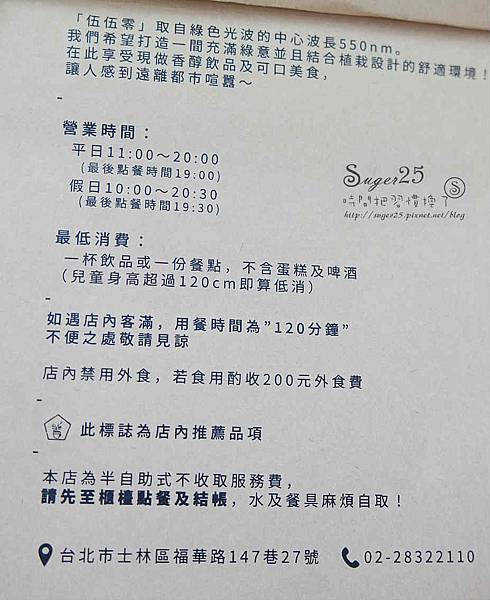 「伍伍零」取自綠色光波的中心波長550nm。
我們希望打造一間充滿綠意並且結合植栽設計的舒適環境！
在此享受現做香醇飲品及可口美食，
讓人感到遠離都市喧囂～
-
營業時間：
平日11:00～20:00
(最後點餐時間19:00)
假日10:00～20:30
(最後點餐時間19:30)
Suger25
S
時間把習慣換了
http://suger25.pixnet.net/blog
最低消費：
一杯飲品或一份餐點，不含蛋糕及啤酒
(兒童身高超過120cm即算低消)
-
如遇店內客滿，用餐時間為"120分鐘"
不便之處敬請見諒
店內禁用外食，若食用酌收200元外食費
-
此標誌為店內推薦品項
-
本店為半自助式不收取服務費，
請先至櫃檯點餐及結帳，水及餐具麻煩自取！
台北市士林區福華路147巷27號
02-28322110